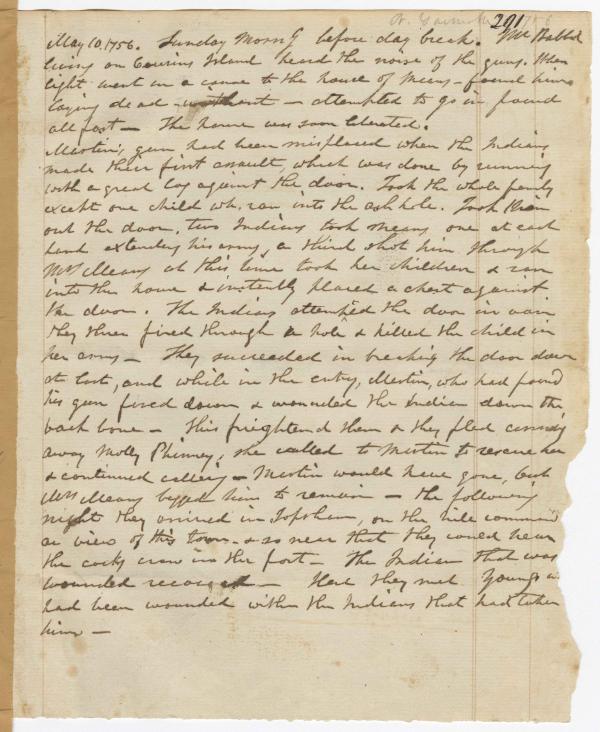 201
May 10. 1756. Sunday Morng before day break. Mr
living on Cousins Island heard the noise of the guns. When
light went in a canoe to the house of Means - found him
laying dead without - attempted to go in found
all fast - The house was soon liberated.
Martin's gun had been misplaced when the Indians
made their first assault, which was done by running
with a great log against the door. Took the whole family
except one child who ran into the ash hole. Took them
out the door, two Indians took Means one at each
hand extending his arms, a third shot him through
Mrs Means at this time took her children & ran
into the house & instantly placed a chest against
the door. The Indians attempted the door in vain
they then fired through a hole & killed the child in
her arms - They succeeded in breaking the door down
at last, and while in the entry, Martin, who had found
his gun fired down & wounded the Indian down the
back bone - This frightend them & they fled
away Molly Phinney, she called to Martin to rescue her
& continued calling - Martin would have gone, but
Mrs Means begged him to remain - the following
night they arrived in Topsham, on the hill
a view of this town - & so near that they could hear
the cocks crow in the fort - The Indian that was
wounded - Here they met Young
had been wounded with the Indians that had taken
him -